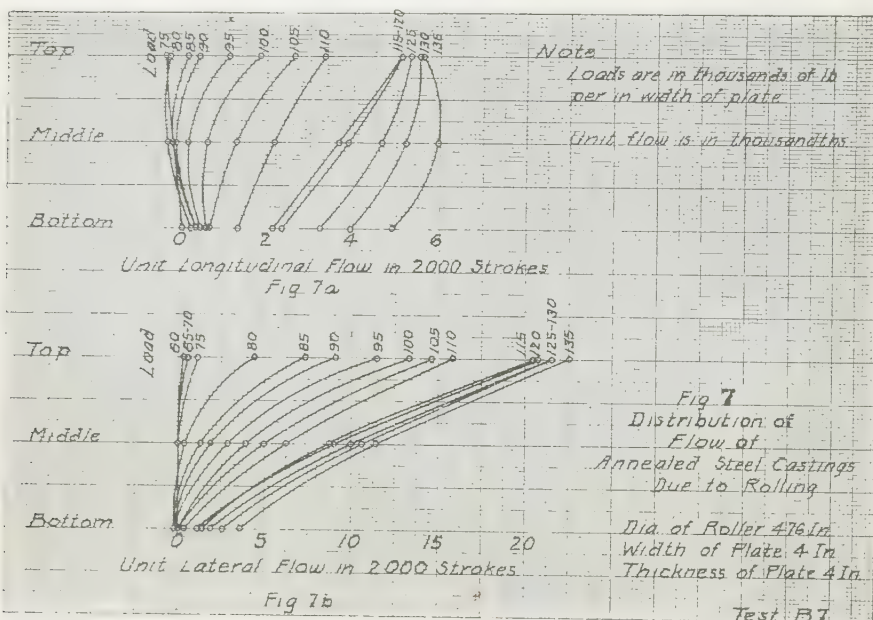 Load
75
80
85
90
95
100
105
110
115-120
125
130
135
Top
Middle
Bottom
0 2 4 6
Unit Longitudinal Flow in 2000 Strokes
Fig 7a
Note
Loads are in thousands of lb
per in width of plate
Unit flow is in thousandths
Load
60
65-70
75
80
85
90
95
100
105
110
115
120
125-130
135
Top
Middle
Bottom
0 5 10 15 20
Unit Lateral Flow in 2000 Strokes
Fig 7b
Fig 7
Distribution of
Flow of
Annealed Steel Castings
Due to Rolling
Dia of Roller 476 In
Width of Plate 4 In
Thickness of Plate 4 In
Test B7